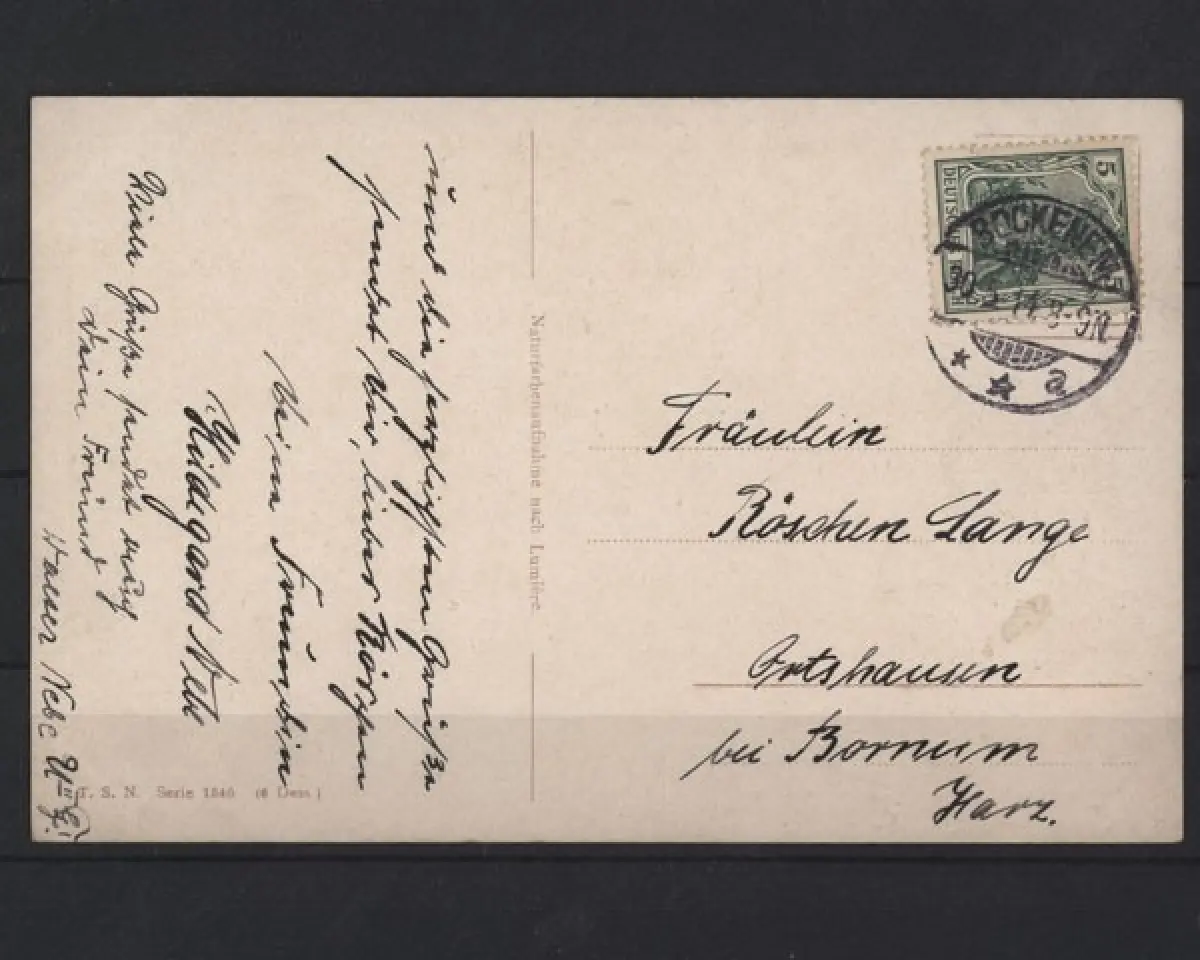 und die herzlichsten Grüße
sendet Dir, liebes Röschen
Deine Freundin
Hildegard
Viele Grüße sendet auch
Dein Freund
T. S. N. Serie 1846 (6 Dess.)
Naturfarbenaufnahme nach Lumière
5
DEUTSCHES REICH
BOCKENEM
30. 11. 8-9N
* * a
Fräulein
Röschen Lange
Ortshausen
bei Bornum
Harz.